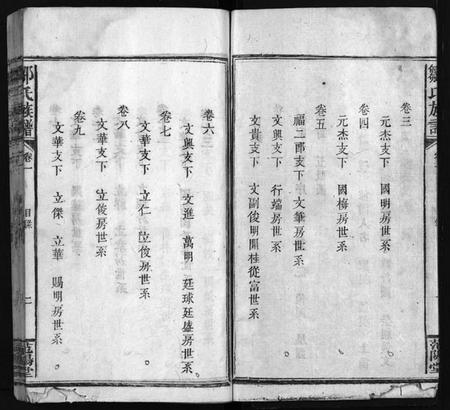 鄒氏族譜
卷三
元杰支下 國明房世系
卷四
元杰支下 國梅房世系
卷五
福二郎支下 文華房世系
文興支下 行端房世系
文貴支下 文副俊明關桂從富世系
范陽堂
卷六
文興支下 文進 萬明 廷球廷盛房世系
卷七
文華支下 立仁 立俊房世系
卷八
文華支下 立俊房世系
卷九
文華支下 立傑 立華 賜明房世系
鄒氏族譜 卷一 目錄 二 范陽堂